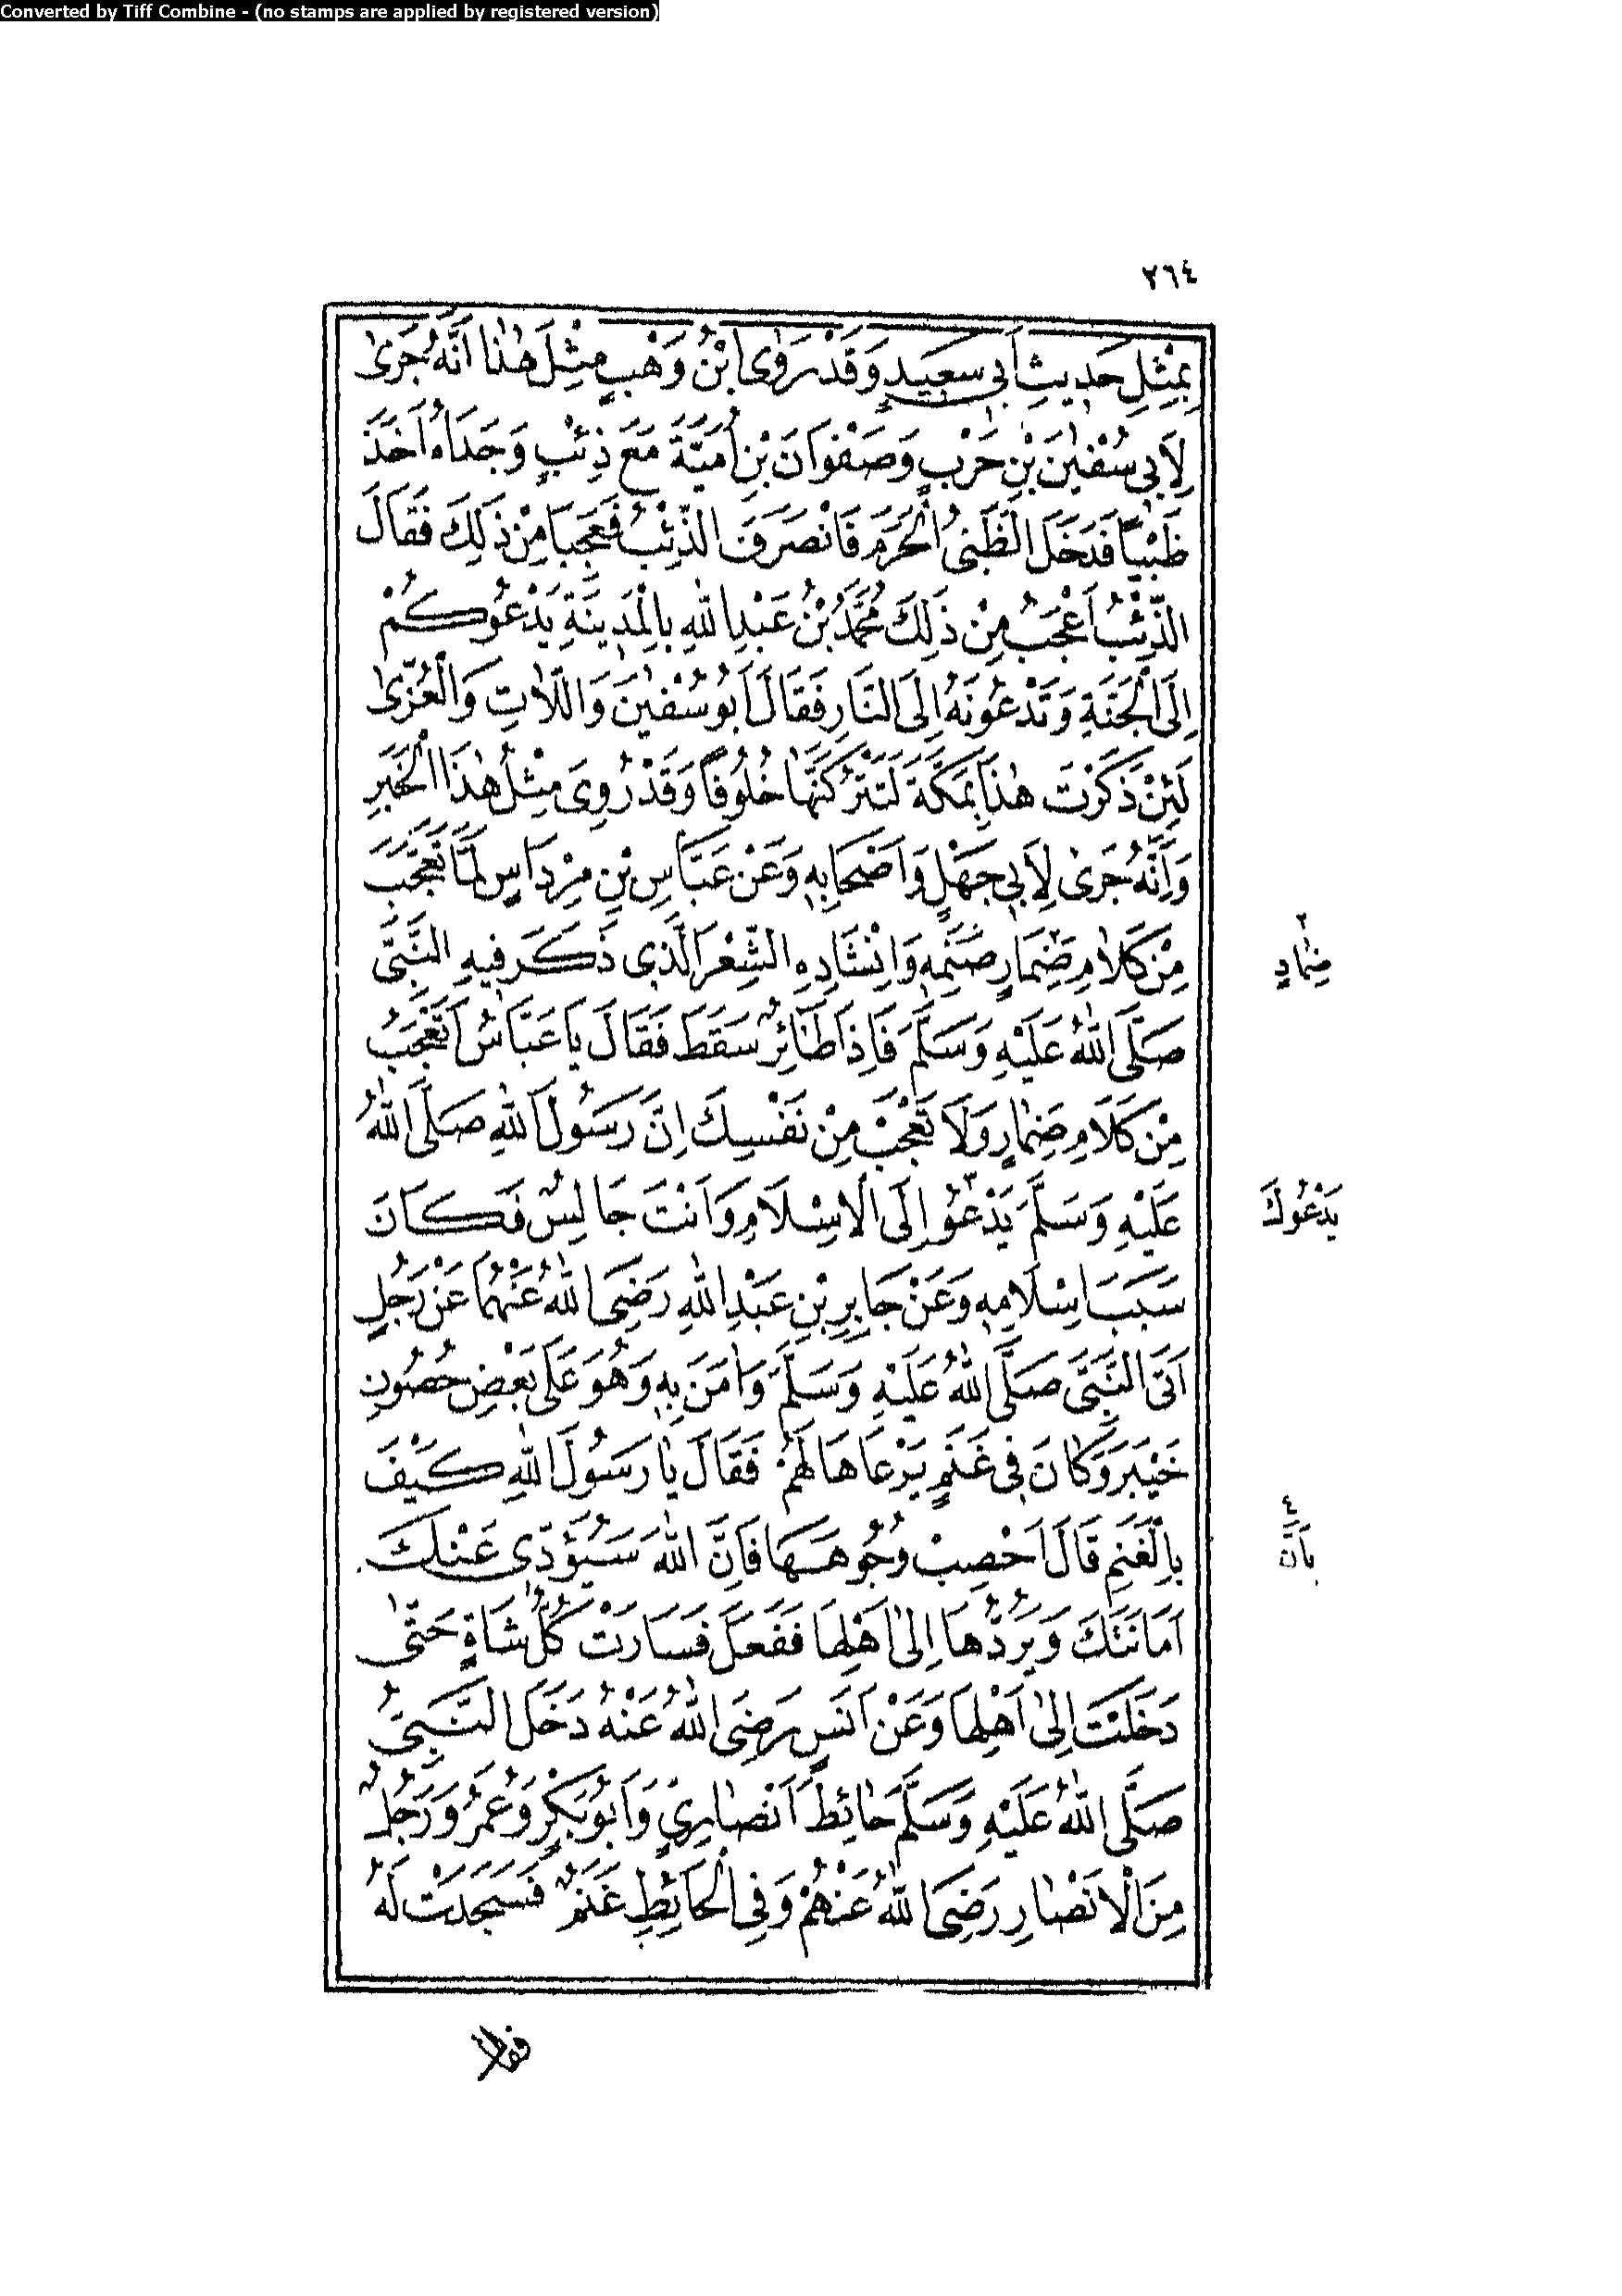 Converted by Tiff Combine - (no stamps are applied by registered version)
٢٦٤
بِمِثْلِ حَدِيثِ اَبِى سَعِيدٍ وَقَدْ رَوٰى ابْنُ وَهْبٍ مِثْلَ هٰذَا اَنَّهُ جَرٰى
لِاَبِى سُفْيٰنَ بْنِ حَرْبٍ وَصَفْوَانَ بْنِ اُمَيَّةَ مَعَ ذِئْبٍ وَجَدَاهُ اَخَذَ
ظَبْيًا فَدَخَلَ الظَّبْىُ الْحَرَمَ فَانْصَرَفَ الذِّئْبُ فَعَجِبَا مِنْ ذَلِكَ فَقَالَ
الذِّئْبُ اَعْجَبُ مِنْ ذَلِكَ مُحَمَّدُ بْنُ عَبْدِ اللّٰهِ بِالْمَدِينَةِ يَدْعُوكُمْ
اِلَى الْجَنَّةِ وَتَدْعُونَهُ اِلَى النَّارِ فَقَالَ اَبُو سُفْيٰنَ وَاللَّاتِ وَالْعُزّٰى
لَئِنْ ذَكَرْتَ هٰذَا بِمَكَّةَ لَتَتْرُكَنَّهَا خُلُوفًا وَقَدْ رُوِىَ مِثْلُ هٰذَا الْخَبَرِ
وَاَنَّهُ جَرٰى لِاَبِى جَهْلٍ وَاَصْحَابِهِ وَعَنْ عَبَّاسِ بْنِ مِرْدَاسٍ لَمَّا تَعَجَّبَ
مِنْ كَلَامِ ضِمَارٍ صَنَمِهِ وَاِنْشَادِهِ الشِّعْرَ الَّذِى ذَكَرَ فِيهِ النَّبِىَّ
صَلَّى اللّٰهُ عَلَيْهِ وَسَلَّمَ فَاِذَا طَائِرٌ سَقَطَ فَقَالَ يَا عَبَّاسُ اَتَعْجَبُ
مِنْ كَلَامِ ضِمَارٍ وَلَا تَعْجَبُ مِنْ نَفْسِكَ اِنَّ رَسُولَ اللّٰهِ صَلَّى اللّٰهُ
عَلَيْهِ وَسَلَّمَ يَدْعُو اِلَى الْاِسْلَامِ وَاَنْتَ جَالِسٌ فَكَانَ
سَبَبَ اِسْلَامِهِ وَعَنْ جَابِرِ بْنِ عَبْدِ اللّٰهِ رَضِىَ اللّٰهُ عَنْهُمَا عَنْ رَجُلٍ
اَتَى النَّبِىَّ صَلَّى اللّٰهُ عَلَيْهِ وَسَلَّمَ وَاٰمَنَ بِهِ وَهُوَ عَلَى بَعْضِ حُصُونِ
خَيْبَرَ وَكَانَ فِى غَنَمٍ يَرْعَاهَا لَهُمْ فَقَالَ يَا رَسُولَ اللّٰهِ كَيْفَ
بِالْغَنَمِ قَالَ اَحْصِبْ وُجُوهَهَا فَاِنَّ اللّٰهَ سَيُؤَدِّى عَنْكَ
اَمَانَتَكَ وَيَرُدُّهَا اِلٰى اَهْلِهَا فَفَعَلَ فَسَارَتْ كُلُّ شَاةٍ حَتّٰى
دَخَلَتْ اِلٰى اَهْلِهَا وَعَنْ اَنَسٍ رَضِىَ اللّٰهُ عَنْهُ دَخَلَ النَّبِىُّ
صَلَّى اللّٰهُ عَلَيْهِ وَسَلَّمَ حَائِطَ اَنْصَارِىٍّ وَاَبُو بَكْرٍ وَعُمَرُ وَرَجُلٌ
مِنَ الْاَنْصَارِ رَضِىَ اللّٰهُ عَنْهُمْ وَفِى الْحَائِطِ غَنَمٌ فَسَجَدَتْ لَهُ
٢
ضِمَادٍ
يَدْعُوكَ
٤
بِاَنَّ
فقال